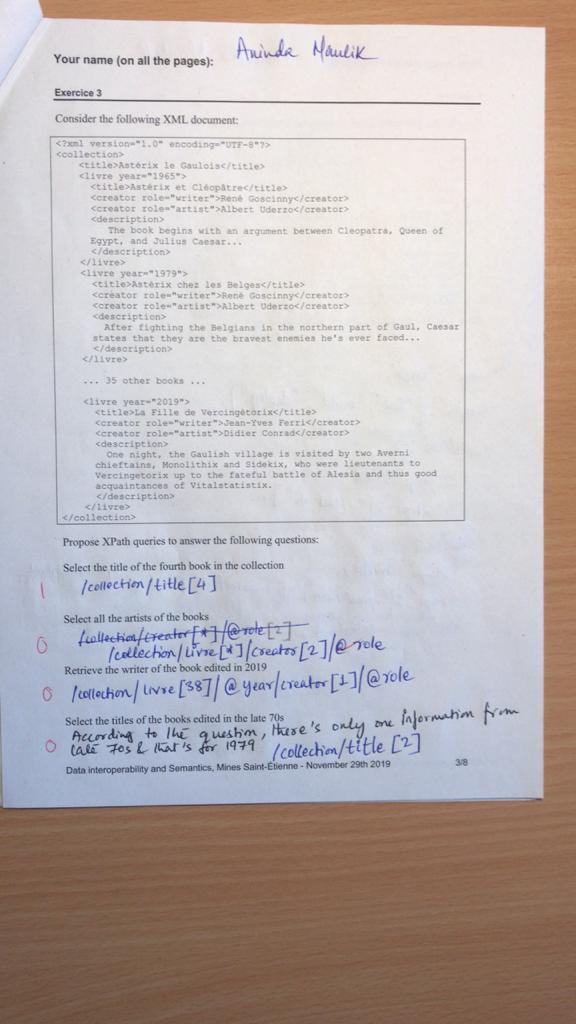 Your name (on all the pages): Aninda Maulik
Exercice 3
Consider the following XML document:
<?xml version="1.0" encoding="UTF-8"?>
<collection>
<title>Astérix le Gaulois</title>
<livre year="1965">
<title>Astérix et Cléopâtre</title>
<creator role="writer">René Goscinny</creator>
<creator role="artist">Albert Uderzo</creator>
<description>
The book begins with an argument between Cleopatra, Queen of
Egypt, and Julius Caesar...
</description>
</livre>
<livre year="1979">
<title>Astérix chez les Belges</title>
<creator role="writer">René Goscinny</creator>
<creator role="artist">Albert Uderzo</creator>
<description>
After fighting the Belgians in the northern part of Gaul, Caesar
states that they are the bravest enemies he's ever faced...
</description>
</livre>
... 35 other books ...
<livre year="2019">
<title>La Fille de Vercingétorix</title>
<creator role="writer">Jean-Yves Ferri</creator>
<creator role="artist">Didier Conrad</creator>
<description>
One night, the Gaulish village is visited by two Averni
chieftains, Monolithix and Sidekix, who were lieutenants to
Vercingetorix up to the fateful battle of Alesia and thus good
acquaintances of Vitalstatistix.
</description>
</livre>
</collection>
Propose XPath queries to answer the following questions:
Select the title of the fourth book in the collection
1 /collection/title[4]
Select all the artists of the books
/collection/creator[*]/@role[2]
0 /collection/Livre[*]/creator[2]/@role
Retrieve the writer of the book edited in 2019
0 /collection/livre[38]/@year/creator[1]/@role
Select the titles of the books edited in the late 70s
According to the question, there's only one information from
0 late 70s & that's for 1979 /collection/title[2]
Data interoperability and Semantics, Mines Saint-Étienne - November 29th 2019 3/8